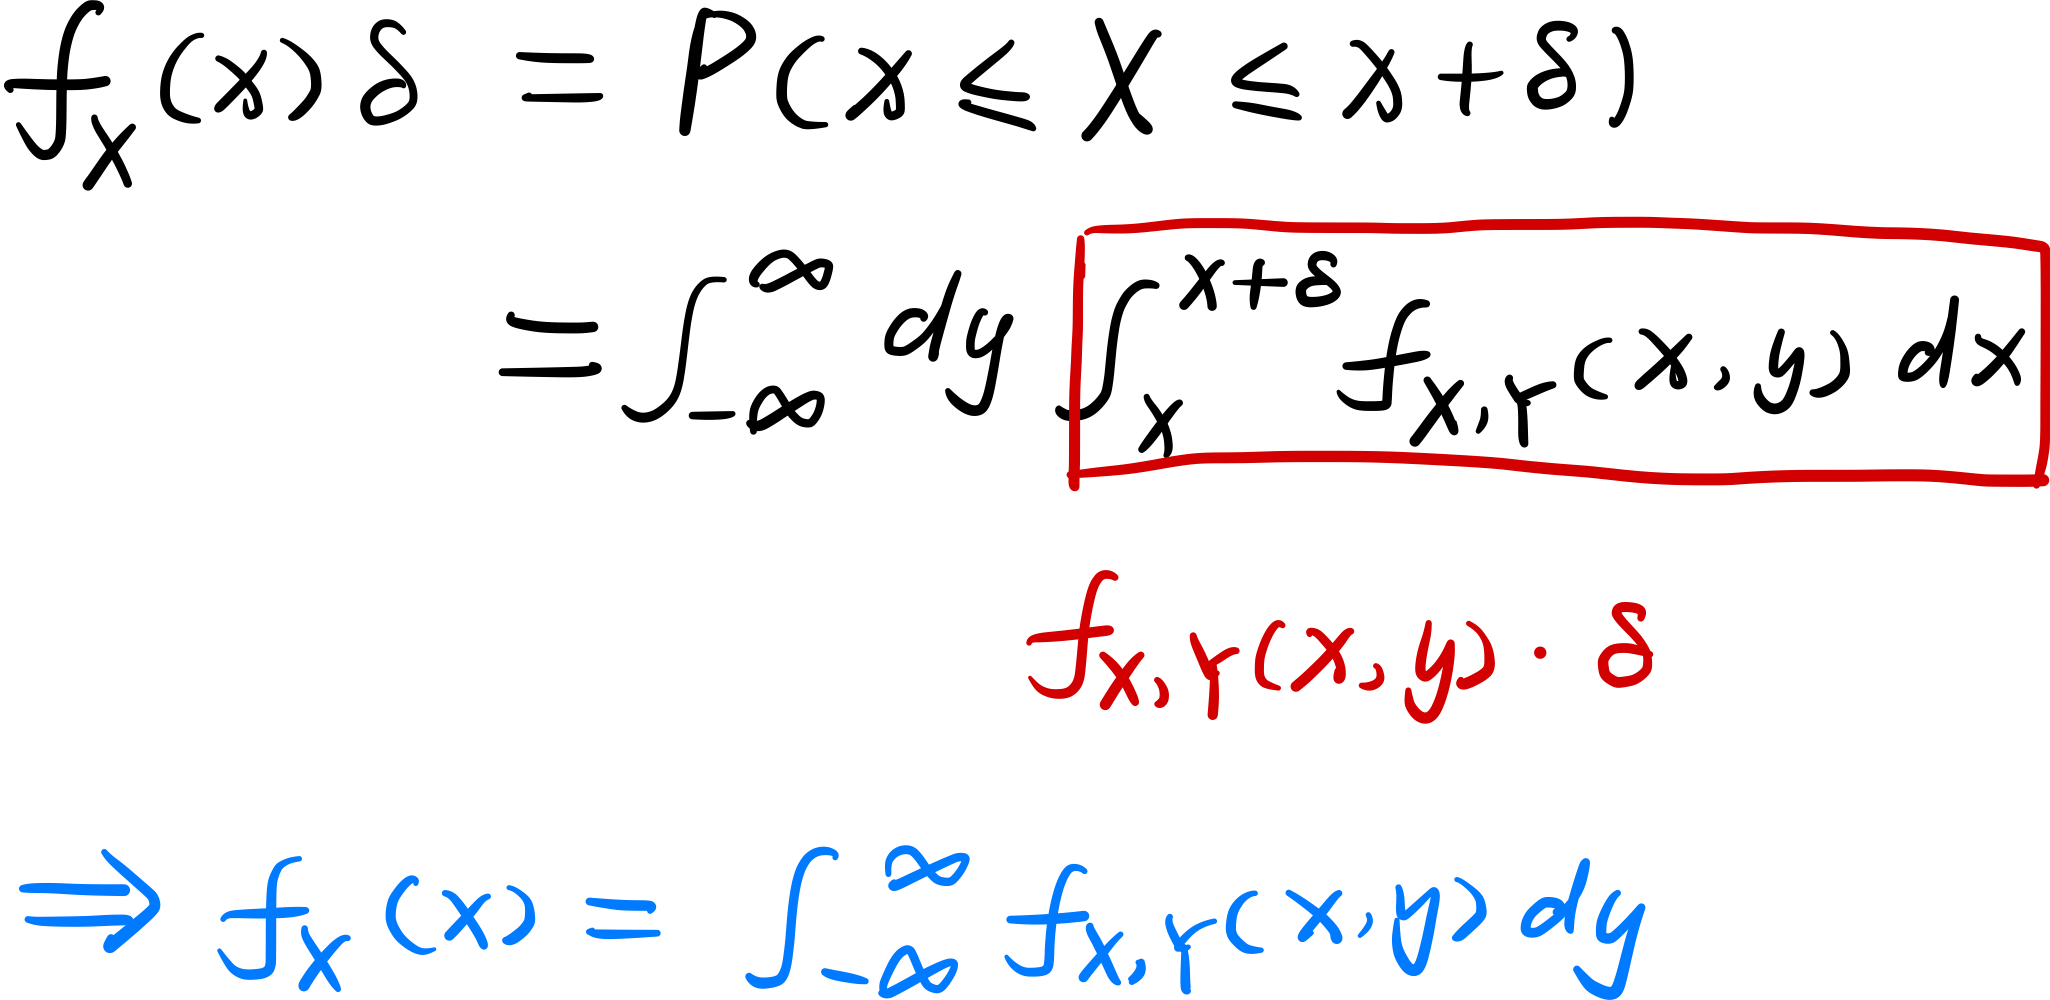 f_X(x)δ = P(x ≤ X ≤ x+δ)
= ∫_{-∞}^{∞} dy ∫_x^{x+δ} f_{X,Y}(x,y) dx
f_{X,Y}(x,y) · δ
⇒ f_X(x) = ∫_{-∞}^{∞} f_{X,Y}(x,y) dy